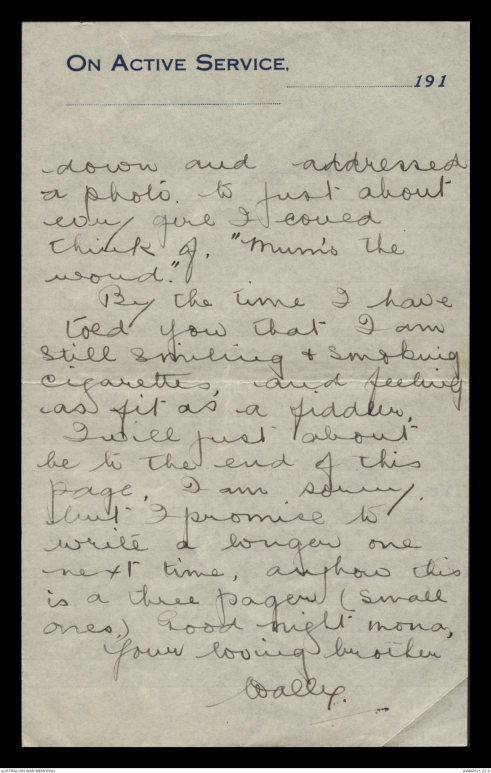 ON ACTIVE SERVICE,
191
down and addressed
a photo. to just about
every girl I could
think of. "Mum's the
word."
By the time I have
told you that I am
still smiling & smoking
cigarettes, and feeling
as fit as a fiddler,
I will just about
be to the end of this
page, I am sorry,
but I promise to
write a longer one
next time, anyhow this
is a three pager (small
ones.) Good night Mona,
Your loving brother
Wally.
AUSTRALIAN WAR MEMORIAL